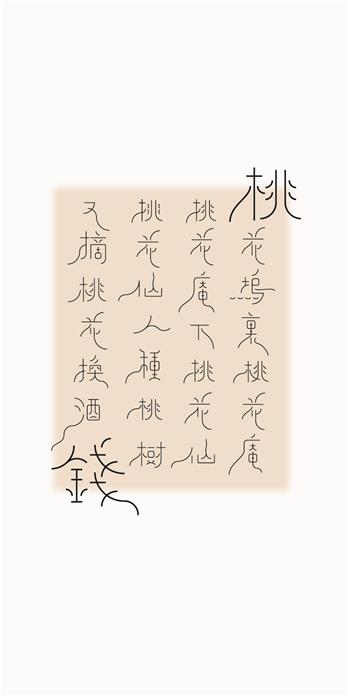 桃花塢裏桃花庵
桃花庵下桃花仙
桃花仙人種桃樹
又摘桃花換酒錢